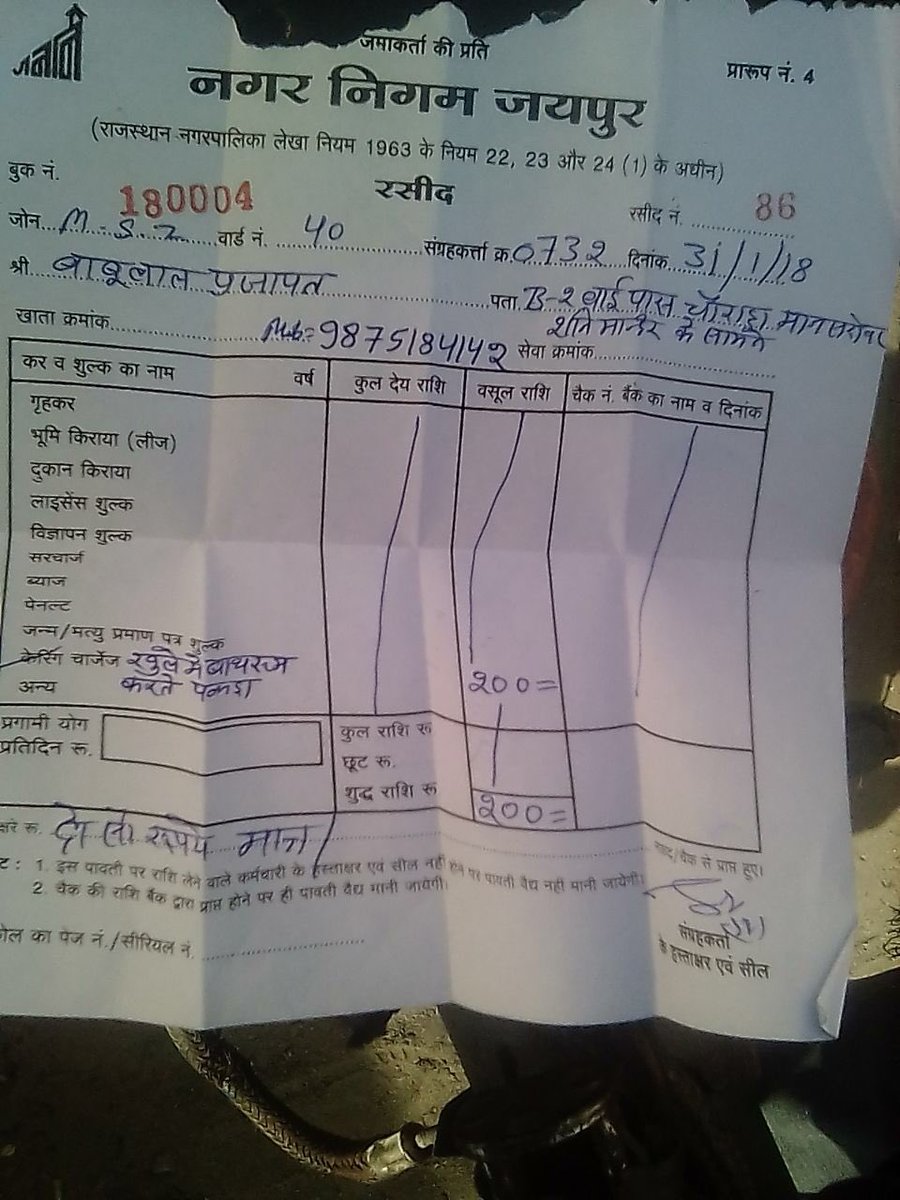 जमाकर्ता की प्रति
प्रारूप नं. 4
नगर निगम जयपुर
(राजस्थान नगरपालिका लेखा नियम 1963 के नियम 22, 23 और 24 (1) के अधीन)
बुक नं. 180004
रसीद
रसीद नं. 86
जोन M.S.Z वार्ड नं. 40 संग्रहकर्त्ता क्र. 0732 दिनांक 31/1/18
श्री बाबूलाल प्रजापत पता B-2 बाई पास चौराहा मानसरोवर
शनि मन्दिर के सामने
खाता क्रमांक Mob= 9875184142 सेवा क्रमांक
कर व शुल्क का नाम वर्ष कुल देय राशि वसूल राशि चैक नं. बैंक का नाम व दिनांक
गृहकर
भूमि किराया (लीज)
दुकान किराया
लाइसेंस शुल्क
विज्ञापन शुल्क
सरचार्ज
ब्याज
पेनल्ट
जन्म/मत्यु प्रमाण पत्र शुल्क
केरिंग चार्जेज खुले मे बाथरूम
अन्य करते पकडा 200=
प्रगामी योग
प्रतिदिन रू.
कुल राशि रू
छूट रू.
शुद्ध राशि रू 200=
रू. दो सो रूपये मात्र
1. इस पावती पर राशि लेने वाले कर्मचारी के हस्ताक्षर एवं सील नहीं होने पर पावती वैध नहीं मानी जायेगी।
2. चैक की राशि बैंक द्वारा प्राप्त होने पर ही पावती वैध मानी जायेगी।
नगद/चैक से प्राप्त हुए।
का पेज नं./सीरियल नं.
संग्रहकर्ता
के हस्ताक्षर एवं सील